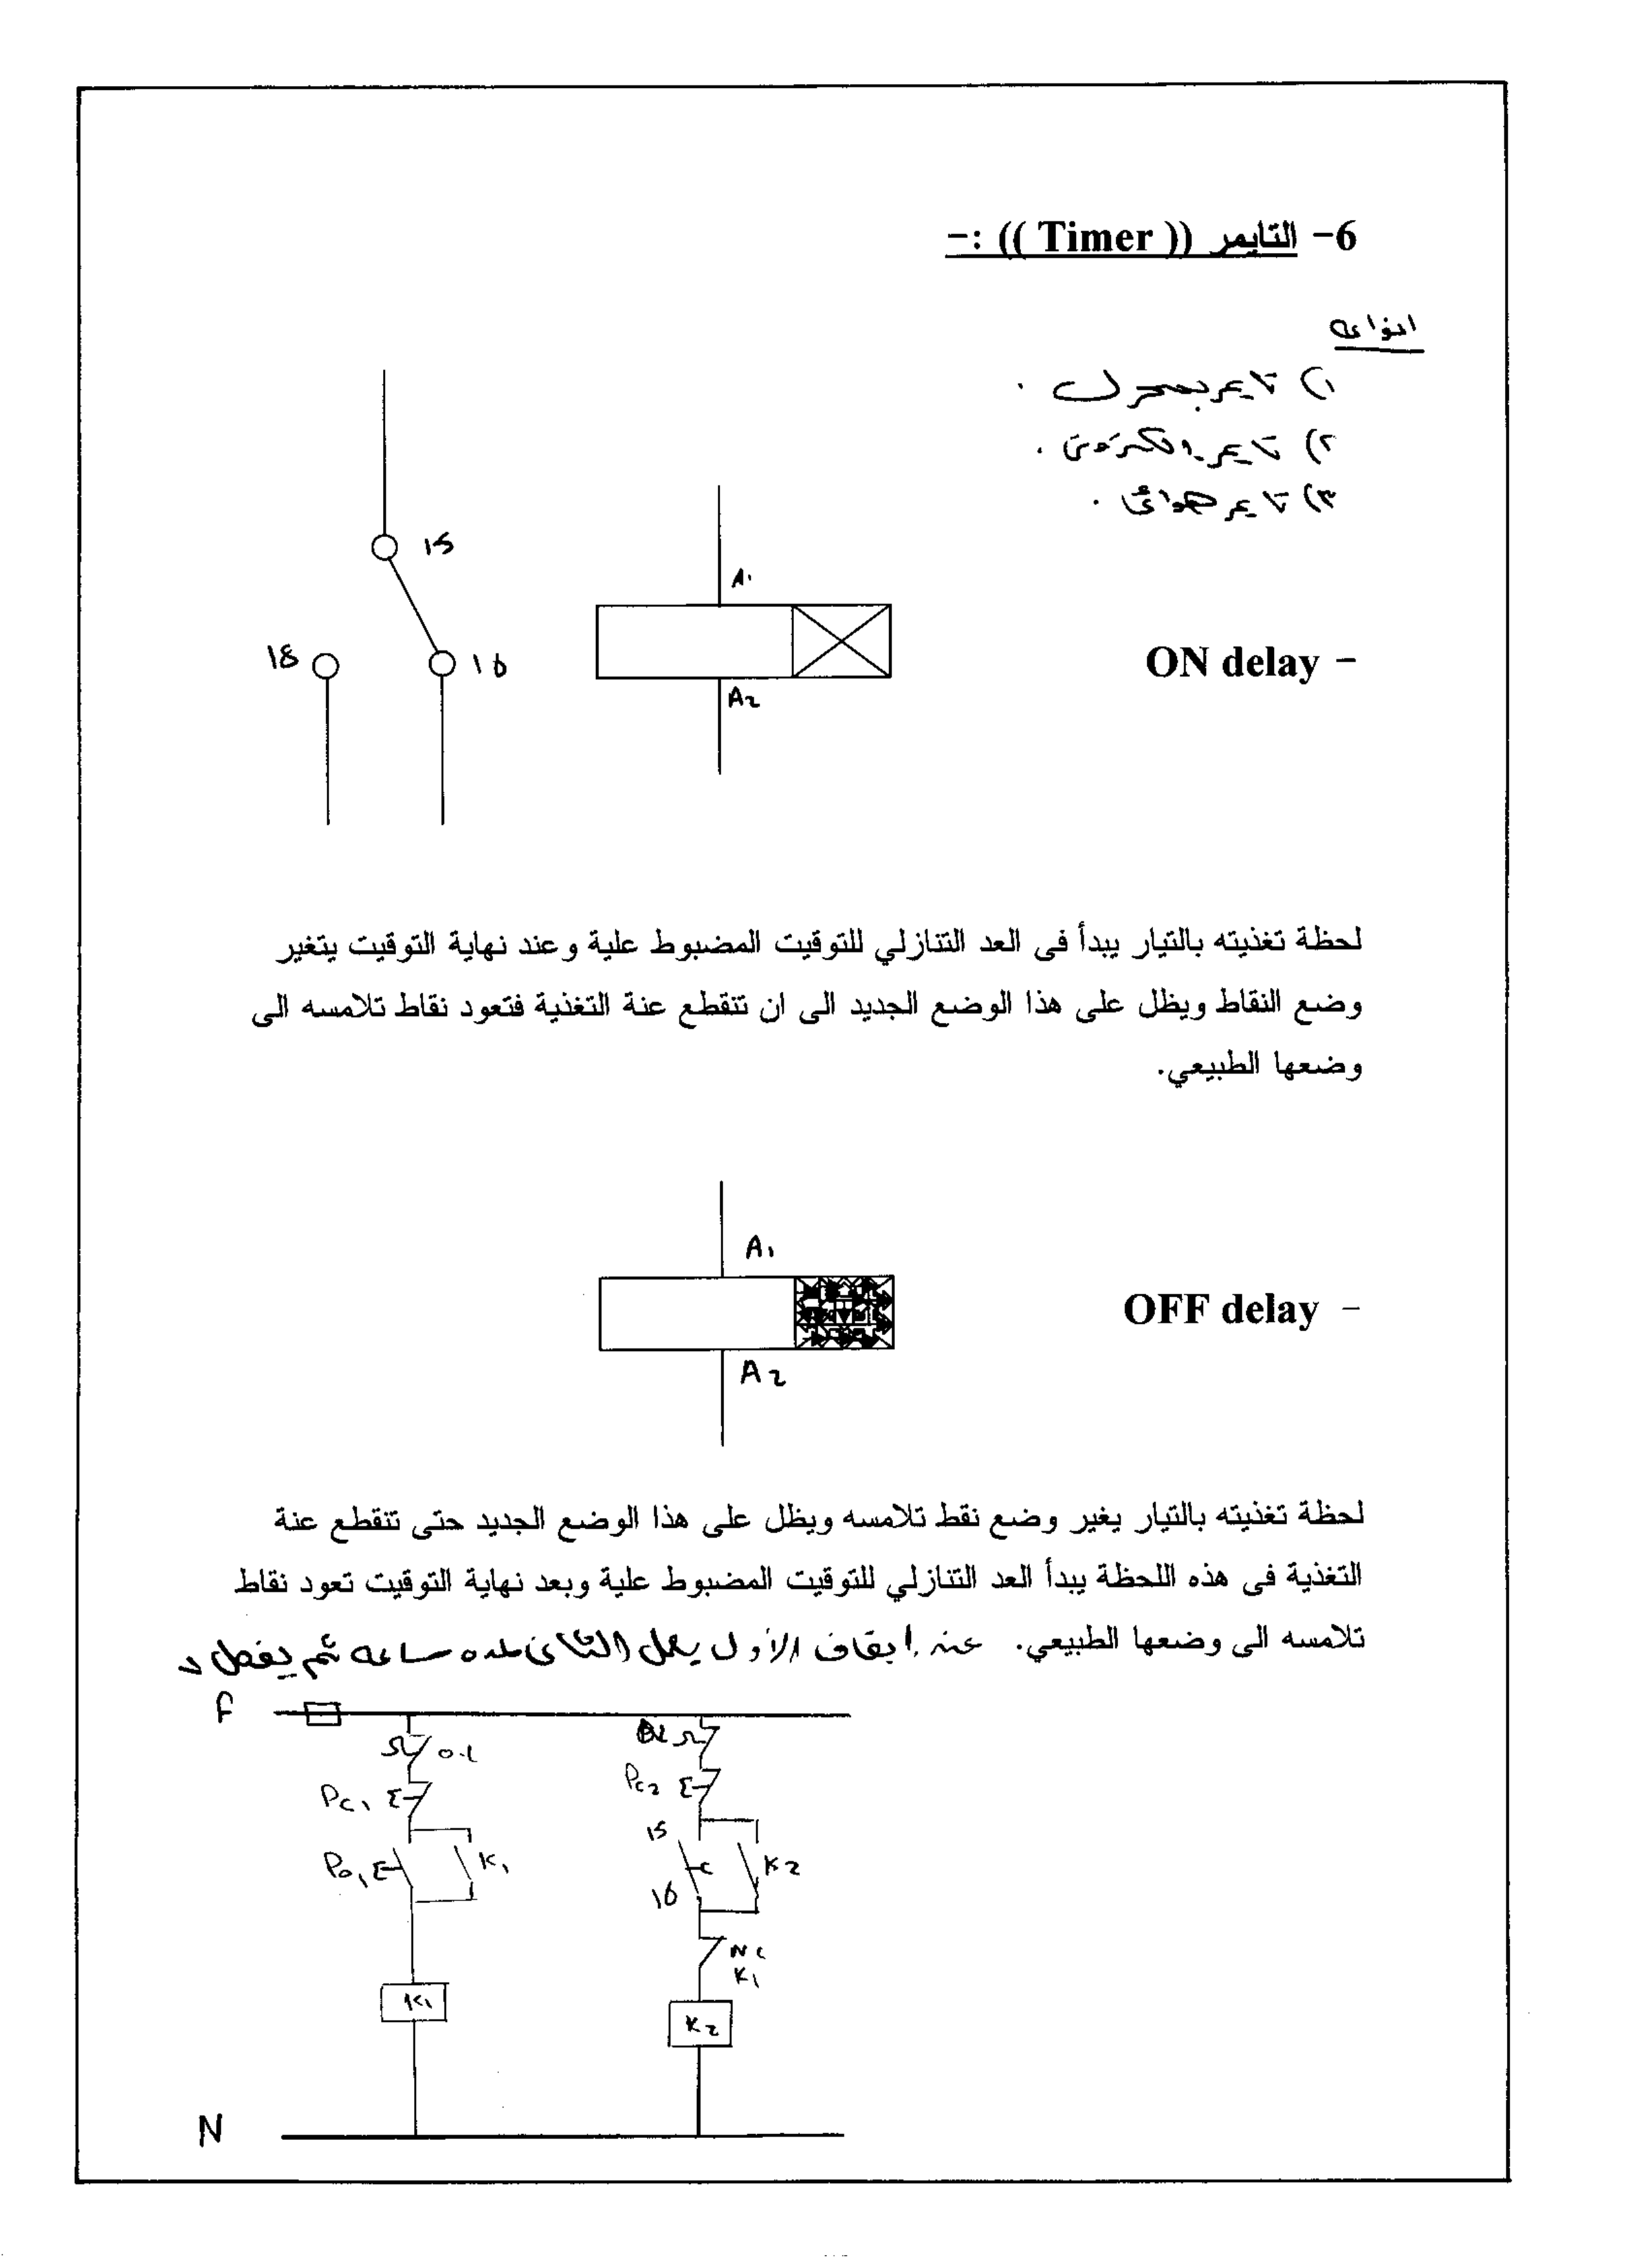 6- التايمر (( Timer )) :-
انواعه
١) تايمر بمحرك .
٢) تايمر الكترونى .
٣) تايمر هوائى .
15
18
16
A1
A2
ON delay -
لحظة تغذيته بالتيار يبدأ فى العد التنازلي للتوقيت المضبوط علية وعند نهاية التوقيت يتغير
وضع النقاط ويظل على هذا الوضع الجديد الى ان تنقطع عنة التغذية فتعود نقاط تلامسه الى
وضعها الطبيعي.
A1
A2
OFF delay -
لحظة تغذيته بالتيار يغير وضع نقط تلامسه ويظل على هذا الوضع الجديد حتى تنقطع عنة
التغذية فى هذه اللحظة يبدأ العد التنازلي للتوقيت المضبوط علية وبعد نهاية التوقيت تعود نقاط
تلامسه الى وضعها الطبيعي. عند ايقاف الأول يعمل الثانى لمده ساعه ثم يفصل
F
o.L
PC1
Po1
K1
K1
PC2
15
16
K2
NC
K1
K2
N